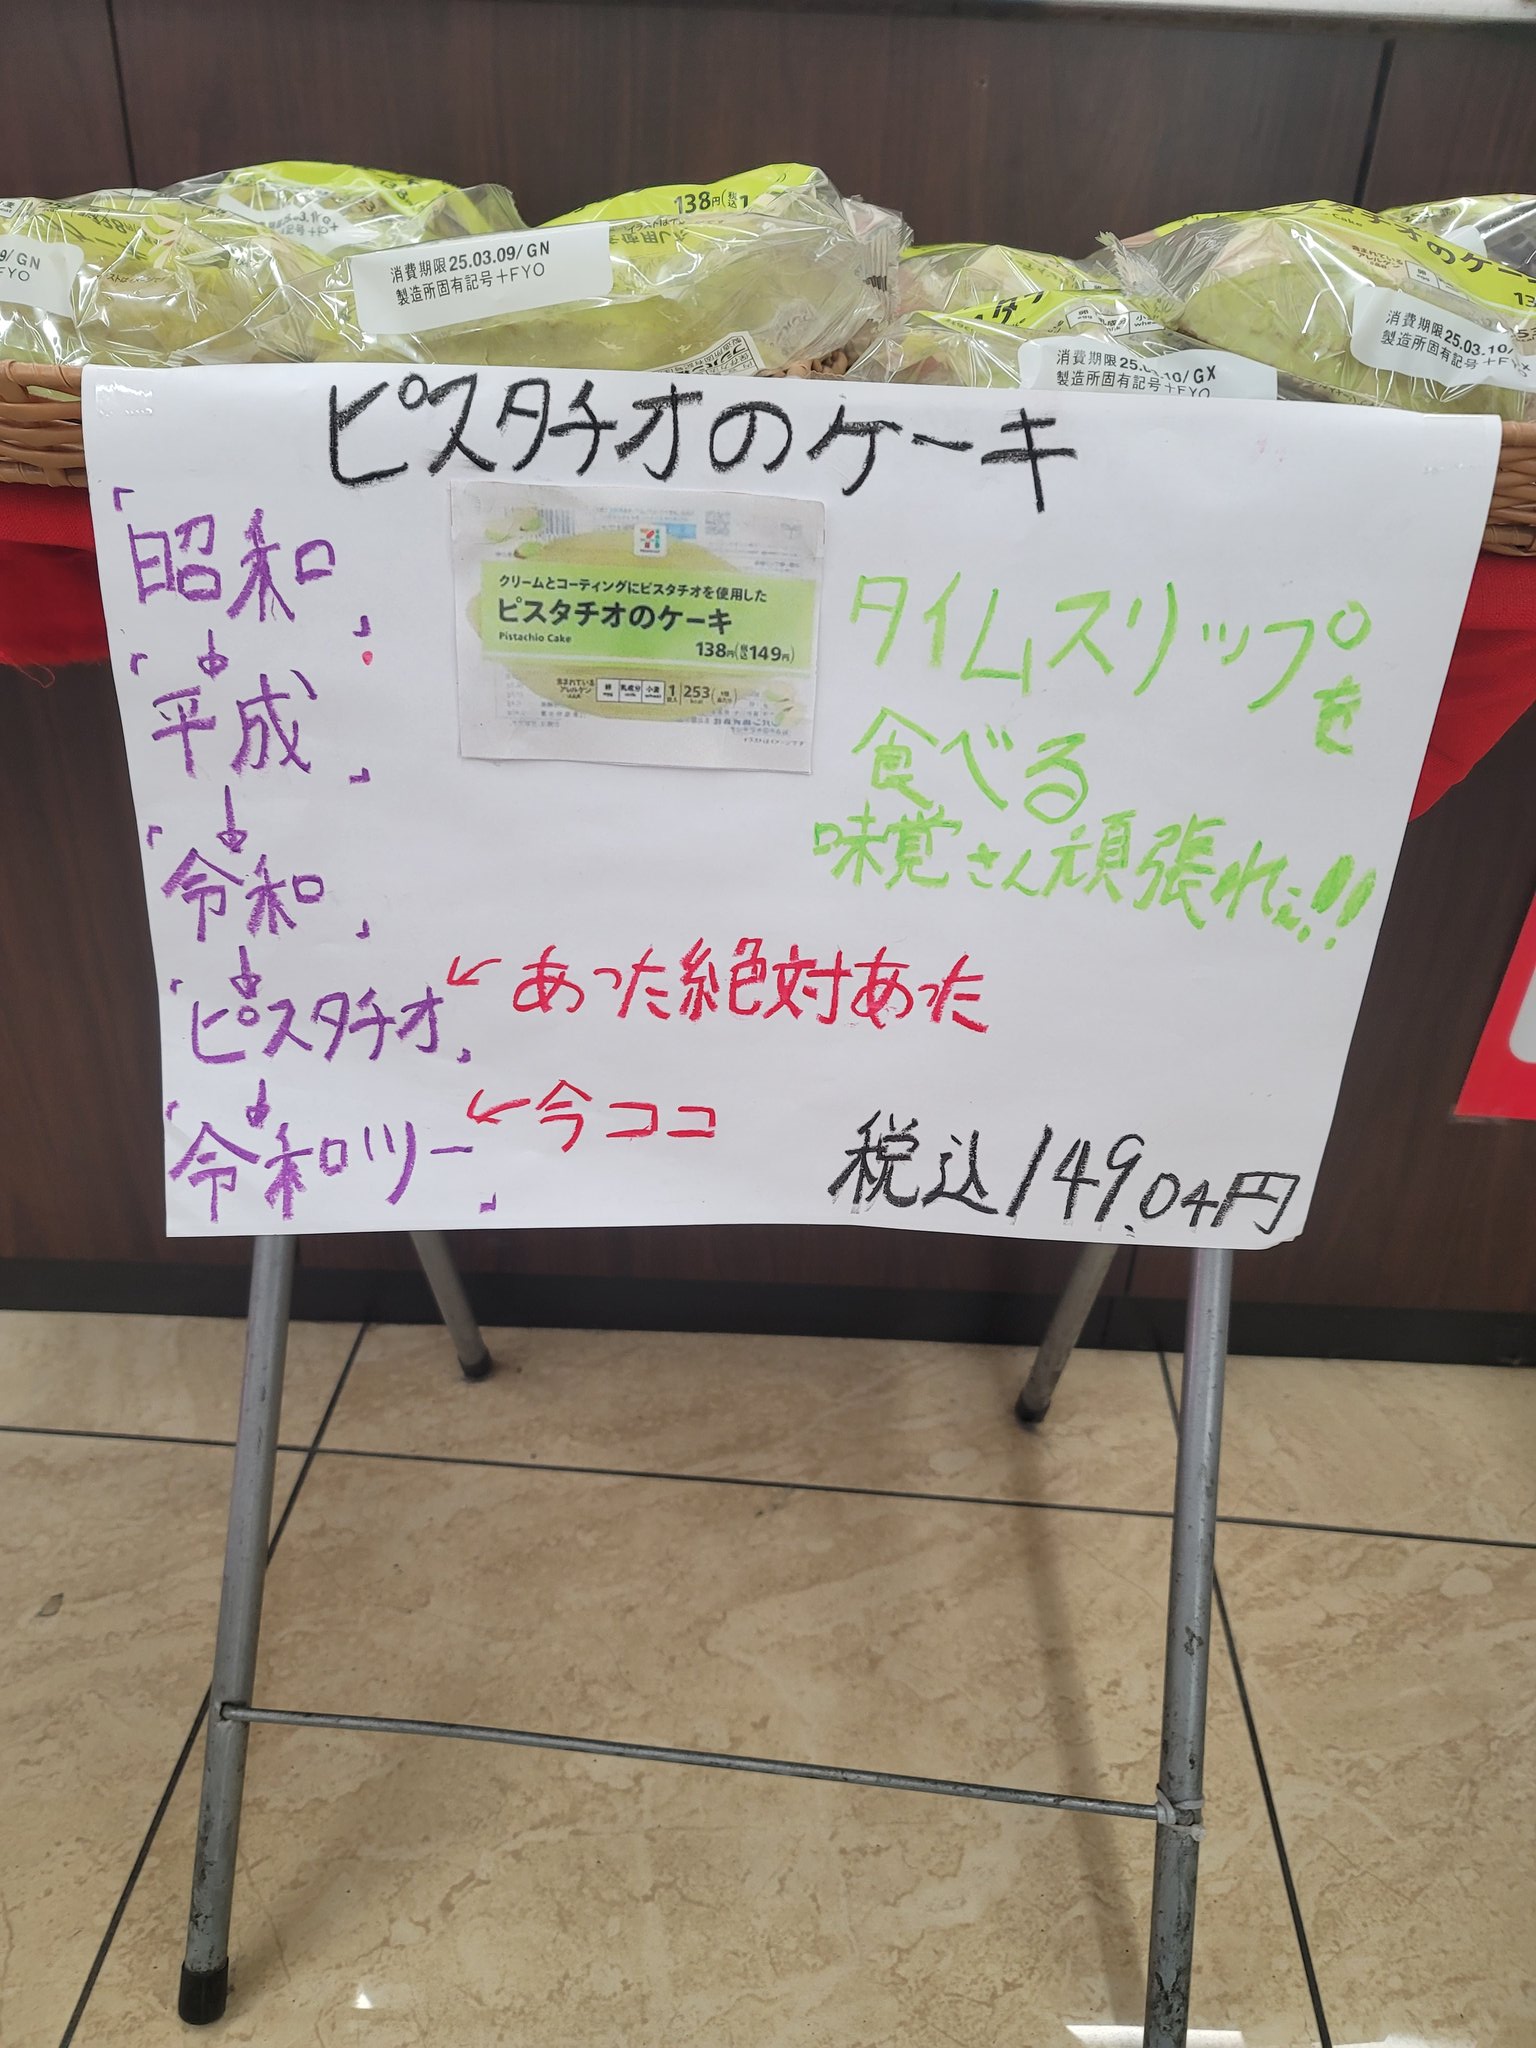 138円(税込1
消費期限25.03.09/GN
製造所固有記号+FYO
9/GN
FYO
のケー
消費期限25.03.10/GX
製造所固有記号+FYO
消費期限25.03.10/
製造所固有記号+FYO
ピスタチオのケーキ
クリームとコーティングにピスタチオを使用した
ピスタチオのケーキ
Pistachio Cake
138円(税込149円)
含まれているアレルゲン
卵 乳成分 小麦
253
「昭和」
「平成」
「令和」
「ピスタチオ」
あった絶対あった
「令和ツー」
今ココ
タイムスリップを
食べる
味覚さん頑張れぇ!!
税込149.04円